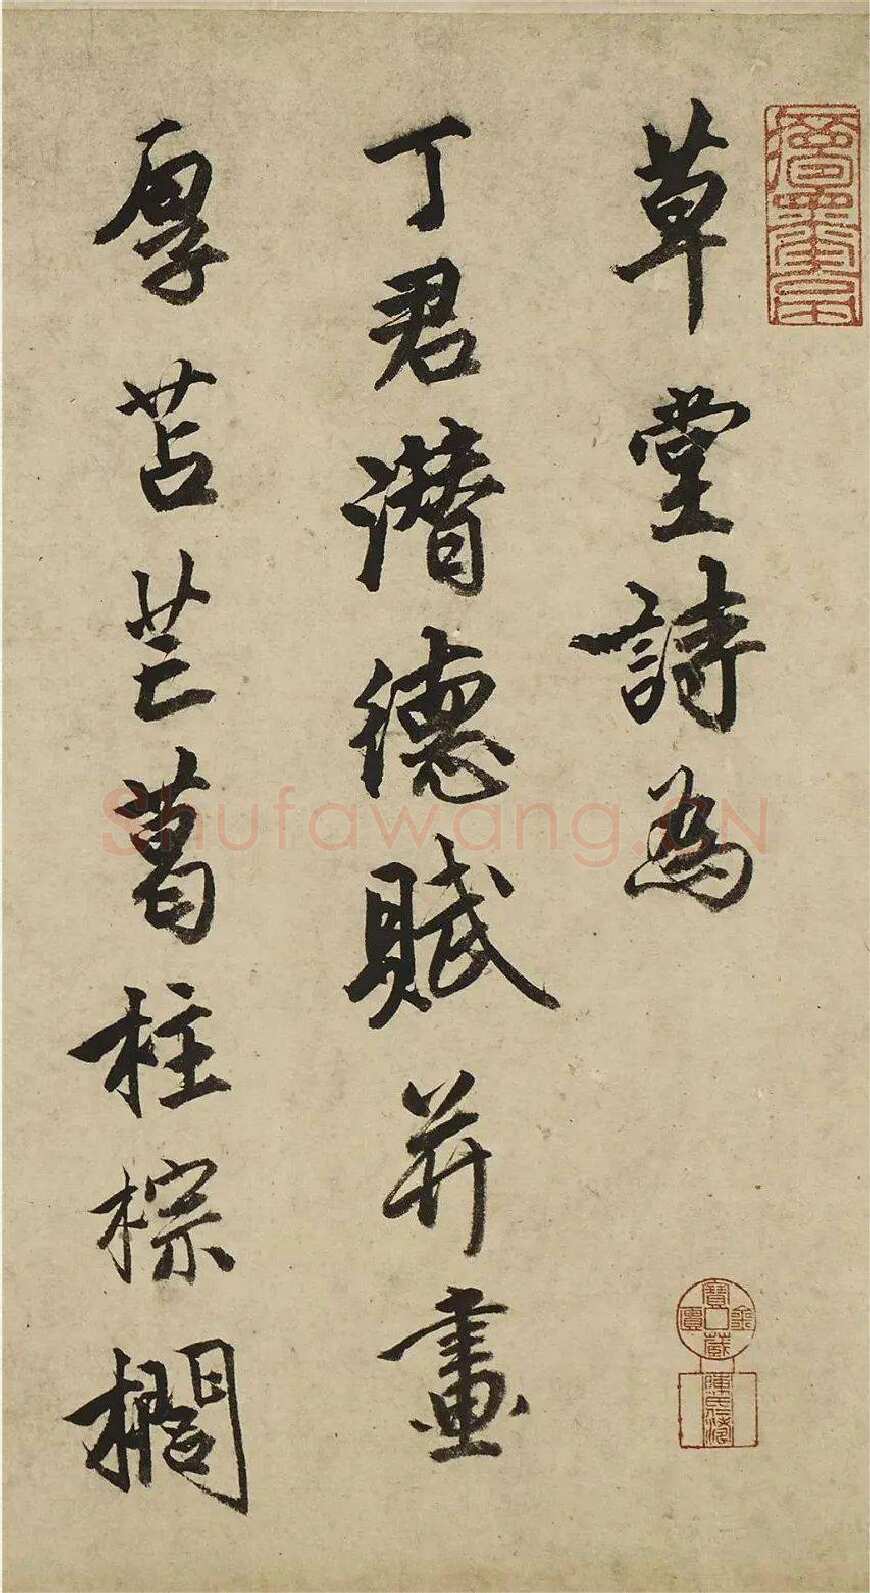 草堂詩為
丁君潛德賦并畫
厚苫芒葛柱棕櫚
Shufawang.CN